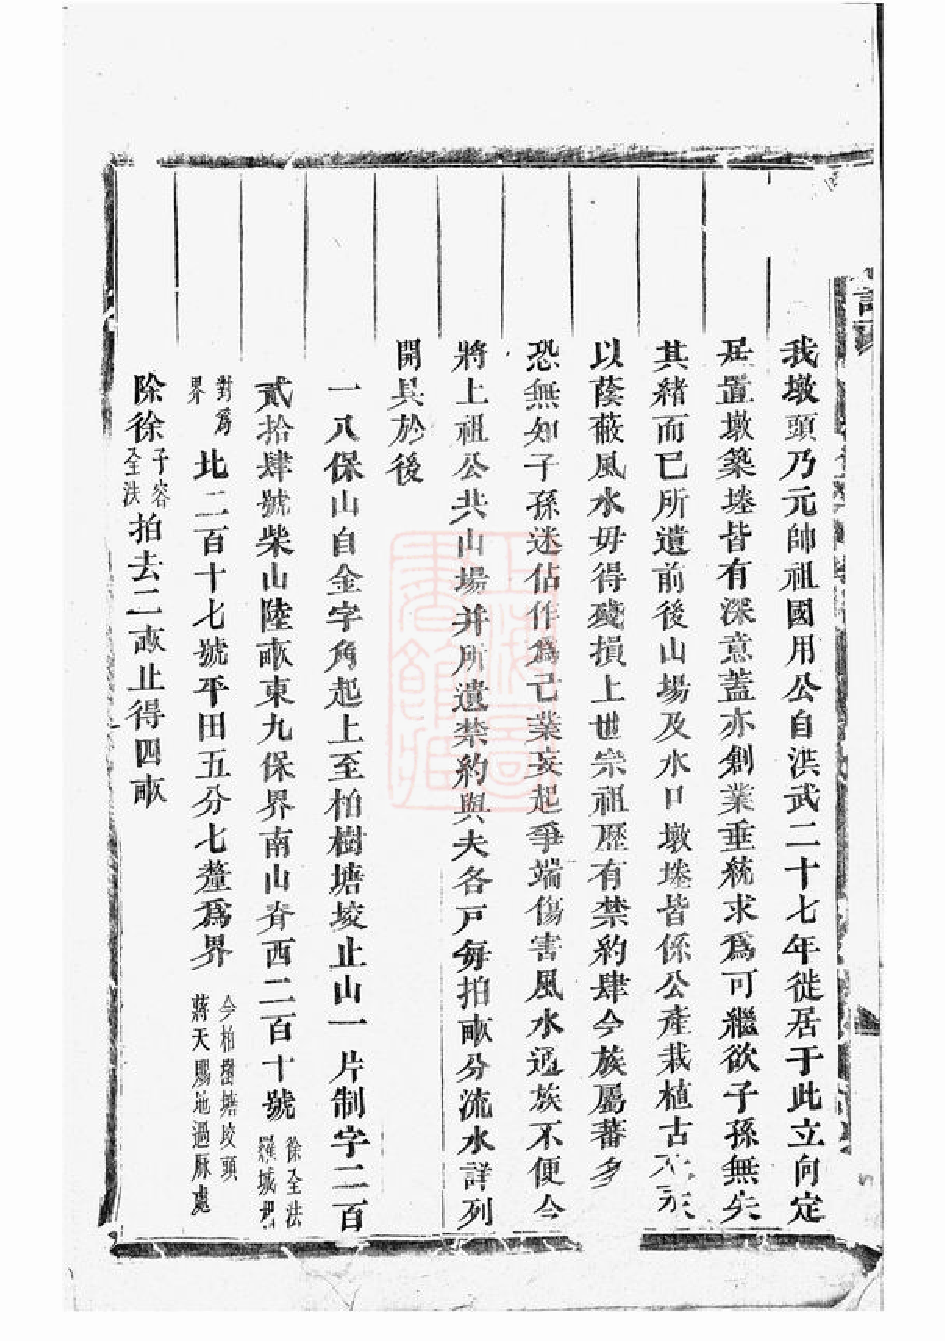 我墩頭乃元帥祖國用公自洪武二十七年徙居于此立向定
基置墩築埁皆有深意蓋亦創業垂統求爲可繼欲子孫無失
其緒而已所遺前後山場及水口墩埁皆係公產栽植古木
以蔭蔽風水毋得殘損上世宗祖歷有禁約肆今族屬蕃多
恐無知子孫迷佔作爲己業妄起爭端傷害風水通族不便今
將上祖公共山場并所遺禁約與夫各戶每拍畝分流水詳列
開具於後
一八保山自金字角起上至柏樹塘埈止山一片制字二百
貳拾肆號柴山陸畝東九保界南山脊西二百十號
徐全法
對爲
界
北二百十七號平田五分七釐爲界
今柏樹塘埈頭
蔣天賜地過脉處
除徐
子容
全法
拍去二畝止得四畝
上海圖書館藏